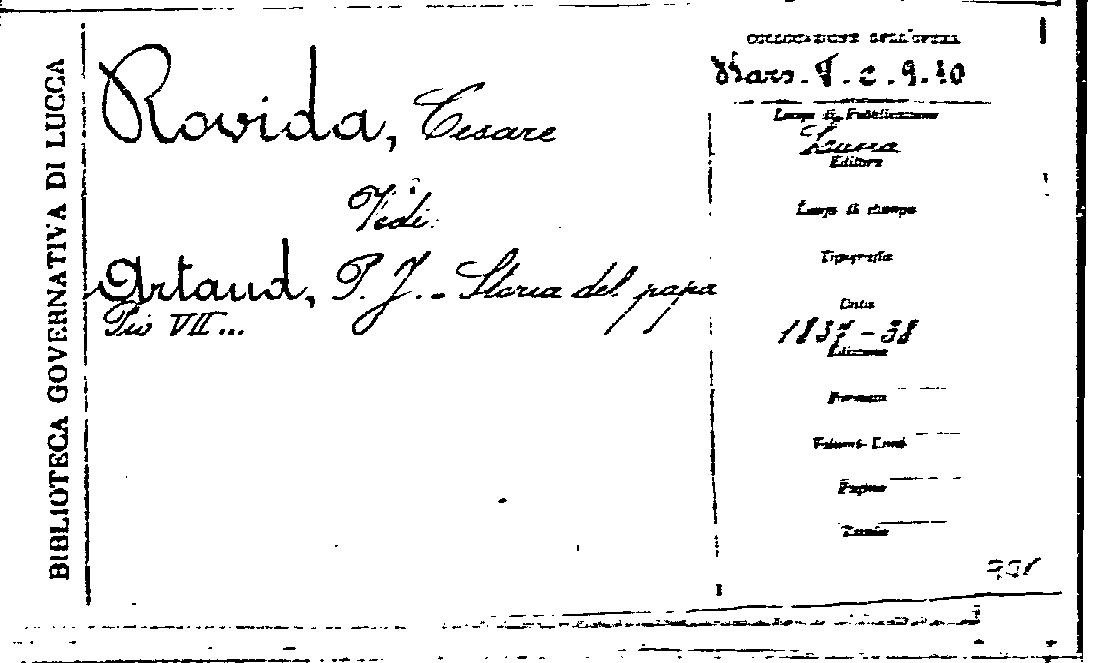 BIBLIOTECA GOVERNATIVA DI LUCCA
Rovida, Cesare
Vedi:
Artaud, P. J. - Storia del papa
Pio VII...
COLLOCAZIONE DELL'OPERA
c. 9. 10
Luogo di Pubblicazione
Lucca
Editore
Luogo di stampa
Tipografia
Data
1837-38
Edizione
Formato
Pagine